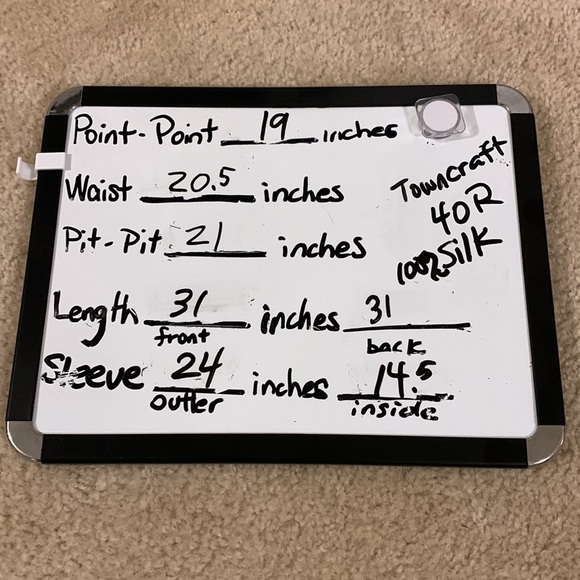 Point-Point 19 inches
Waist 20.5 inches
Pit-Pit 21 inches
Towncraft
40R
100% Silk
Length 31 inches 31
front back
Sleeve 24 inches 14.5
outter inside